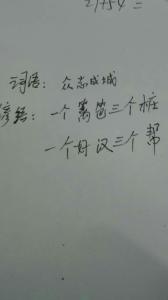 21+54=
词语: 众志成城
谚语: 一个篱笆三个桩
一个好汉三个帮